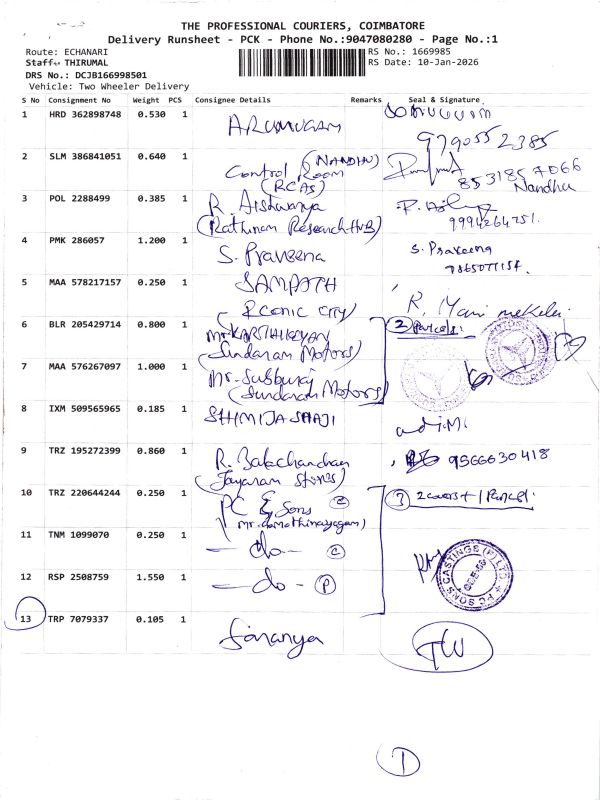 THE PROFESSIONAL COURIERS, COIMBATORE
Delivery Runsheet - PCK - Phone No.:9047080280 - Page No.:1
Route: ECHANARI RS No.: 1669985
Staff: THIRUMAL RS Date: 10-Jan-2026
DRS No.: DCJB166998501
Vehicle: Two Wheeler Delivery
S No Consignment No Weight PCS Consignee Details Remarks Seal & Signature
1 HRD 362898748 0.530 1 ARUMUGAM
9790552385
2 SLM 386841051 0.640 1 Control Room (NANDHU) 8531857066
(RCAS) Nandhu
3 POL 2288499 0.385 1 R. Aishwarya
(Rathinam Research Hub) 9994264751.
4 PMK 286057 1.200 1 S. Praveena S. Praveena
7865077154.
5 MAA 578217157 0.250 1 SAMPATH
(Iconic city) R. Mani mekalai
6 BLR 205429714 0.800 1 Mr. KARTHIKEYAN 2 Parcels.
(Sundaram Motors)
7 MAA 576267097 1.000 1 Mr. Subburaj
(Sundaram Motors)
8 IXM 509565965 0.185 1 SHIMIJA SHAJI
9 TRZ 195272399 0.860 1 R. Balachandran 9566630418
(Jayaram Stores)
10 TRZ 220644244 0.250 1 PC & Sons C 3 2 covers + 1 Parcel.
11 TNM 1099070 0.250 1 - do - C
12 RSP 2508759 1.550 1 - do - P
PC SONS CASTINGS (P) LTD
13 TRP 7079337 0.105 1 Saranya TW
1